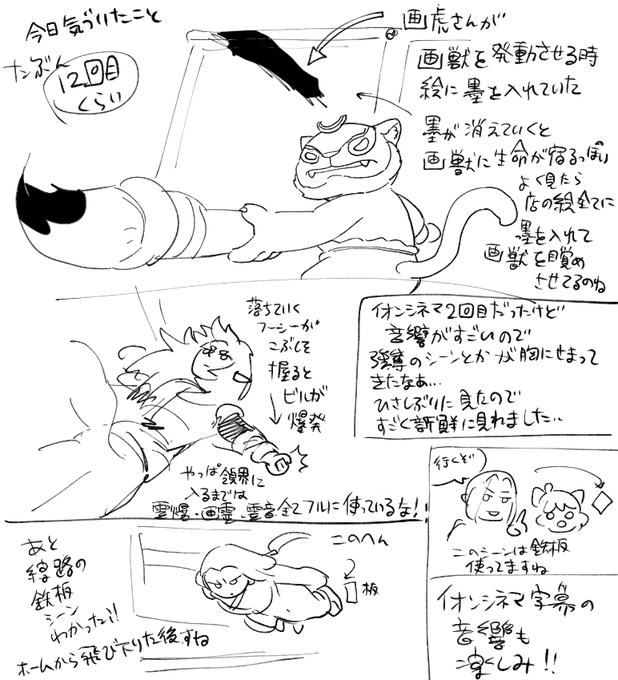 今日気づいたこと
たぶん
12回目
くらい
画虎さんが
画獣を発動させる時
絵に墨を入れていた
墨が消えていくと
画獣に生命が宿るっぽい
よく見たら
店の絵全てに
墨を入れて
画獣を目覚め
させてるのね
落ちていく
フーシーが
こぶしを
握ると
ビルが
爆発
やっぱ領界に
入るまでは
霊音全てフルに使っているな!
イオンシネマ2回目だったけど
音響がすごいので
シーンとかが胸にせまって
きたなぁ…
ひさしぶりに見たので
すごく新鮮に見れました…
行くぞ
このシーンは鉄板
使ってますね
あと
線路の
鉄板
シーン
わかった!!
ホームから飛び下りた後すね
このへん
板
イオンシネマ字幕の
音響も
楽しみ!!